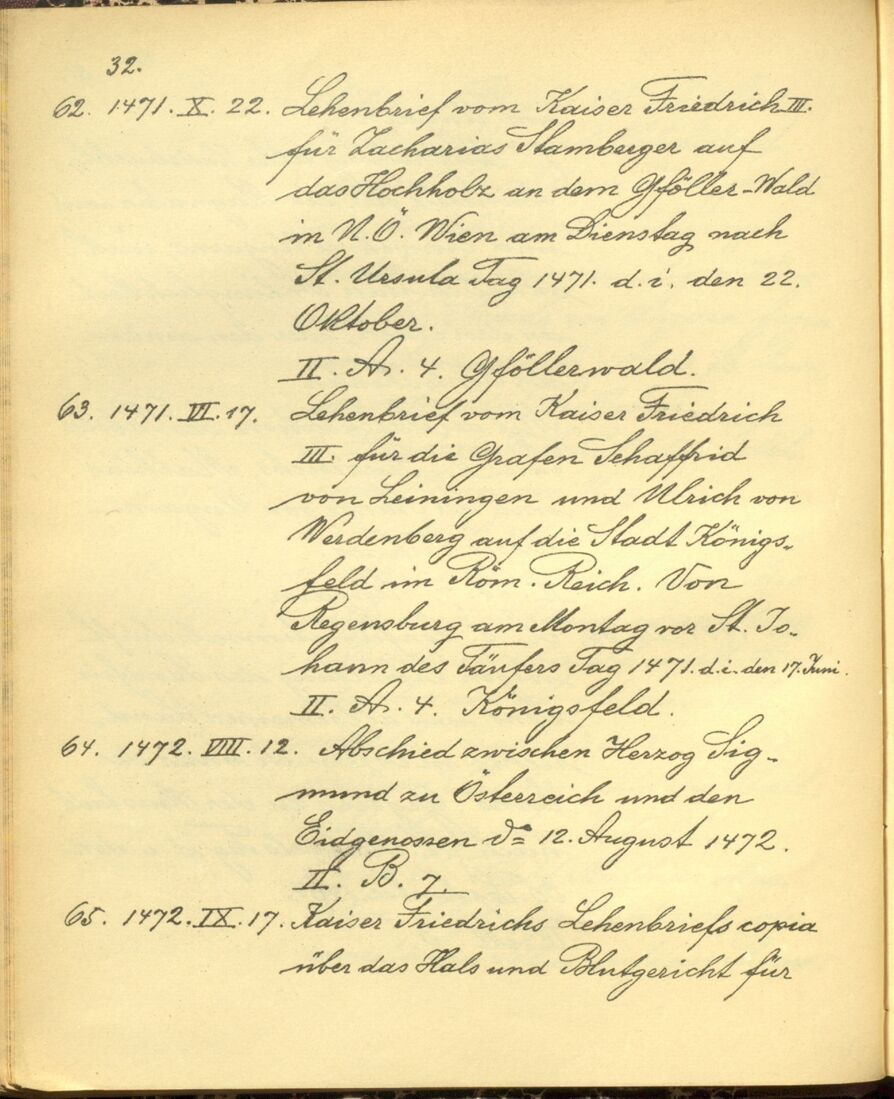 32.
62. 1471. X. 22. Lehenbrief vom Kaiser Friedrich III.
für Zacharias Stamberger auf
das Hochholz an dem Gföller-Wald
in N. Ö. Wien am Dienstag nach
St. Ursula Tag 1471. d. i. den 22.
Oktober.
II. A. 4. Gföllerwald.
63. 1471. VI. 17. Lehenbrief vom Kaiser Friedrich
III. für die Grafen Schaffrid
von Leiningen und Ulrich von
Werdenberg auf die Stadt Königs-
feld im Röm. Reich. Von
Regensburg am Montag vor St. Jo-
hann des Täufers Tag 1471. d. i. den 17. Juni.
II. A. 4. Königsfeld.
64. 1472. VIII. 12. Abschied zwischen Herzog Sig-
mund zu Österreich und den
Eidgenossen 12. August 1472.
II. B. 7.
65. 1472. IX. 17. Kaiser Friedrichs Lehenbriefs copia
über das Hals und Blutgericht für